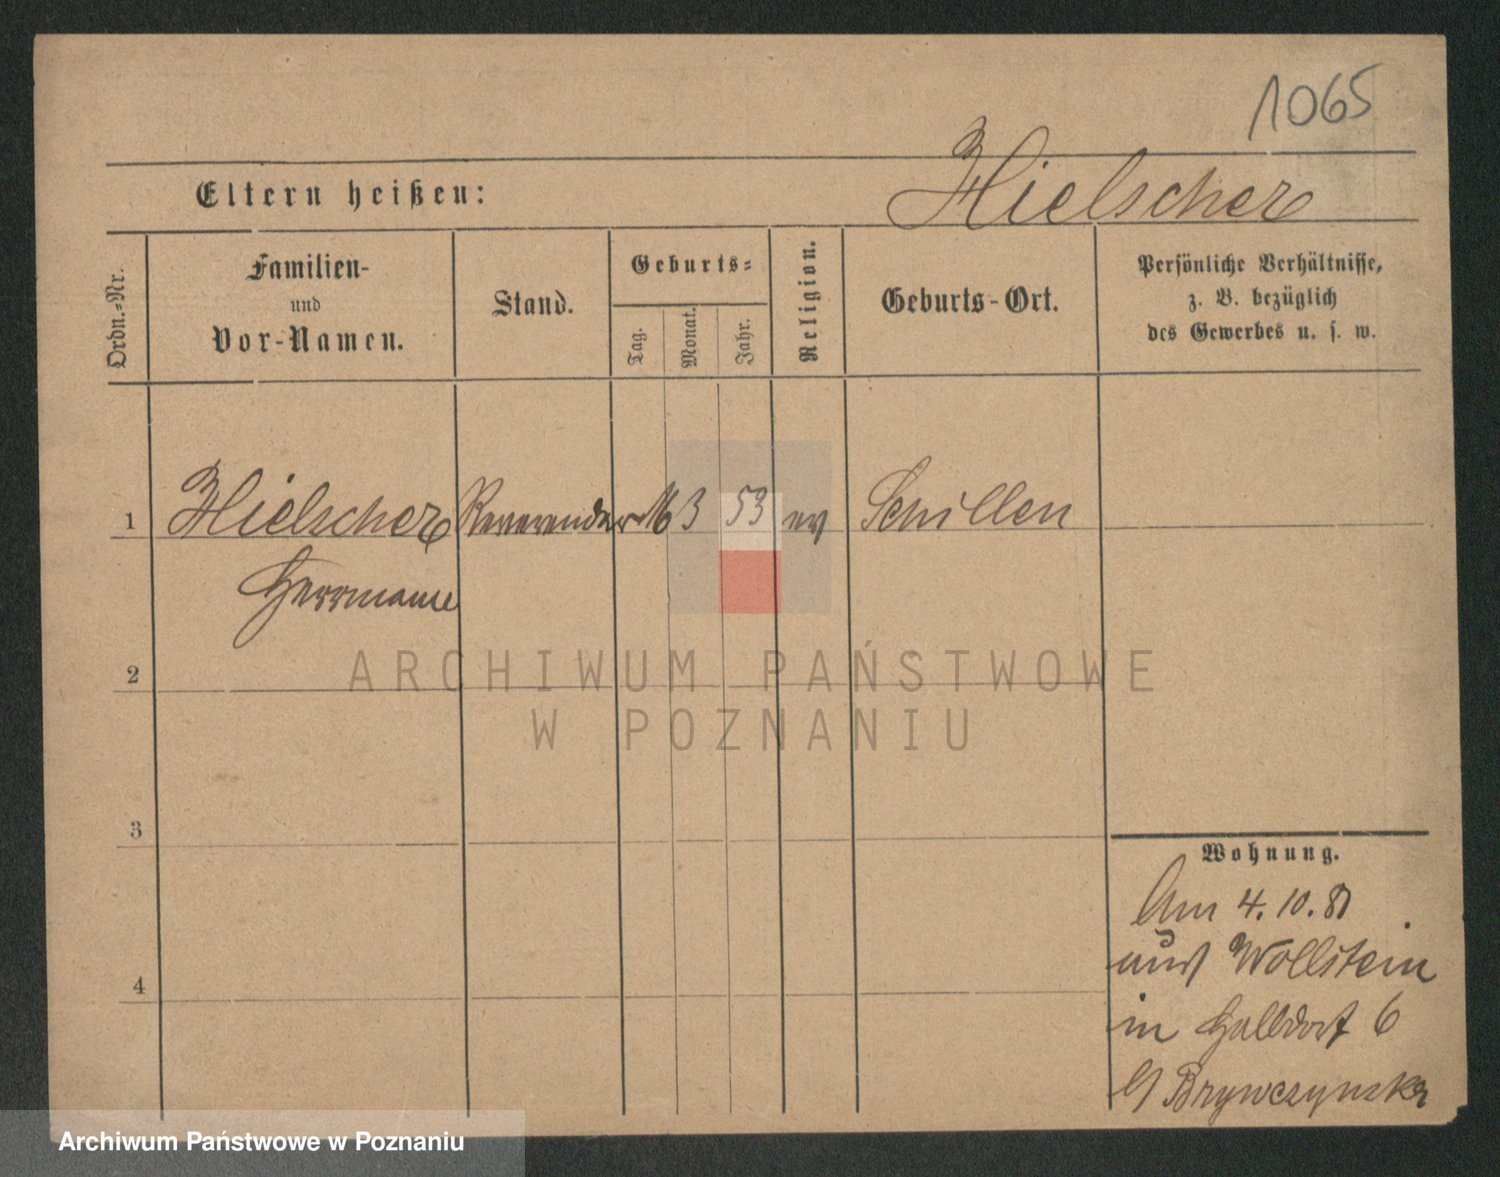 1065
Hielscher
Eltern heißen:
Ordn.-Nr.
Familien-
und
Vor-Namen.
Stand.
Geburts-
Tag.
Monat.
Jahr.
Religion.
Geburts-Ort.
Persönliche Verhältnisse,
z. B. bezüglich
des Gewerbes u. s. w.
1 Hielscher 16 3 53 ev Schillen
Herrmann
2
3
4
Wohnung.
Am 4. 10. 81
aus Wollstein
in Halbdorf 6
Brywczynska
ARCHIWUM PAŃSTWOWE
W POZNANIU
Archiwum Państwowe w Poznaniu